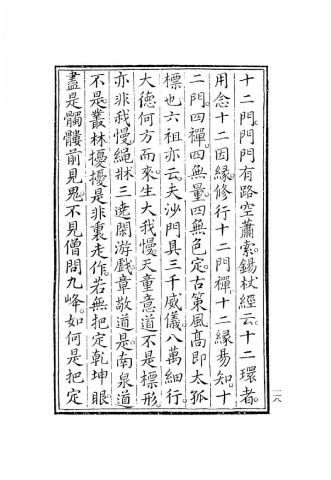 十二門。門門有路空蕭索。錫杖經云。十二環者。
用念十二因緣。修行十二門禪。十二緣易知。十
二門。四禪。四無量。四無色定。古策風高。即太孤
標也。六祖亦云。夫沙門具三千威儀。八萬細行。
大德何方而來。生大我慢。天童意道。不是標形
亦非我慢。繩牀三遶閑游戲。章敬道是。南泉道
不是。叢林擾擾是非裏走作。若無把定乾坤眼。
盡是髑髏前見鬼。不見僧問九峰。如何是把定
二八